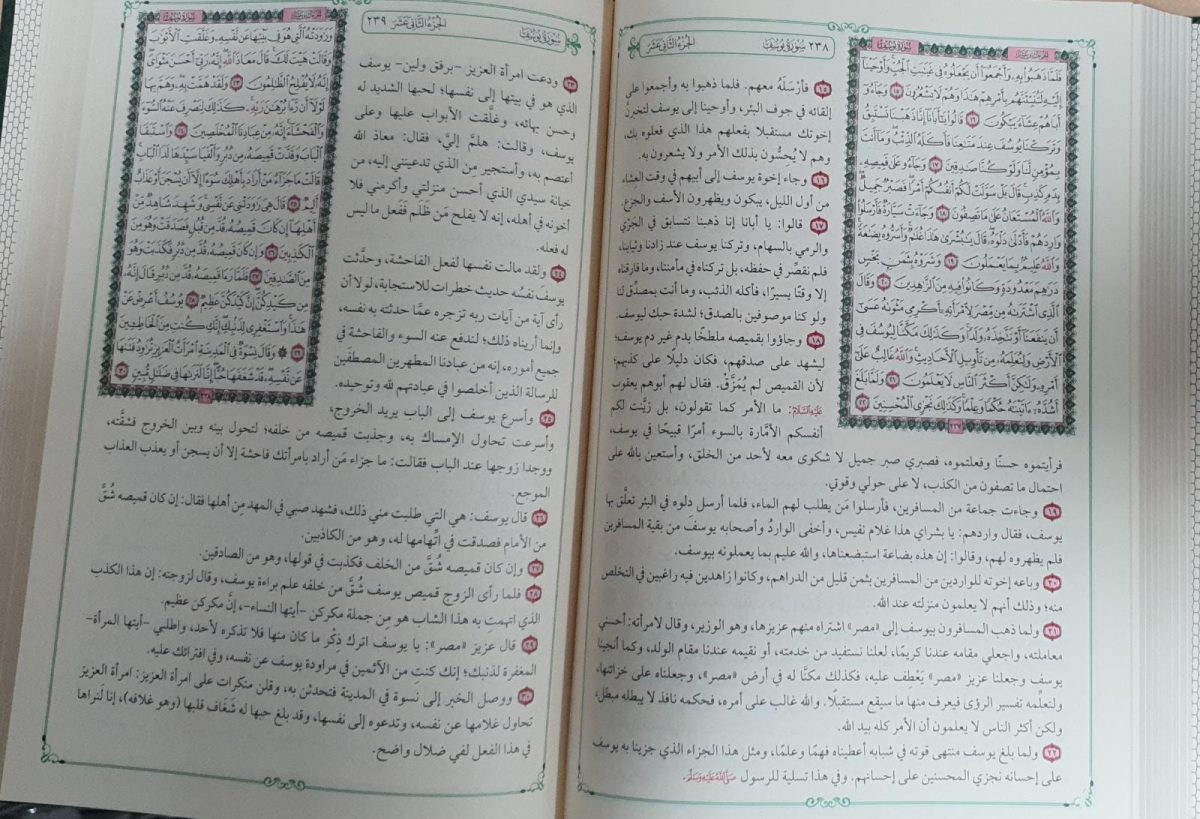 ٢٣٨ سُورَةُ يُوسُفَ الجزءُ الثَّانِي عَشَرَ
سُورَةُ يُوسُفَ
فَلَمَّا ذَهَبُوا۟ بِهِۦ وَأَجْمَعُوٓا۟ أَن يَجْعَلُوهُ فِى غَيَـٰبَتِ ٱلْجُبِّ وَأَوْحَيْنَآ
إِلَيْهِ لَتُنَبِّئَنَّهُم بِأَمْرِهِمْ هَـٰذَا وَهُمْ لَا يَشْعُرُونَ ١٥ وَجَآءُوٓ
أَبَاهُمْ عِشَآءً يَبْكُونَ ١٦ قَالُوا۟ يَـٰٓأَبَانَآ إِنَّا ذَهَبْنَا نَسْتَبِقُ
وَتَرَكْنَا يُوسُفَ عِندَ مَتَـٰعِنَا فَأَكَلَهُ ٱلذِّئْبُ وَمَآ أَنتَ
بِمُؤْمِنٍ لَّنَا وَلَوْ كُنَّا صَـٰدِقِينَ ١٧ وَجَآءُو عَلَىٰ قَمِيصِهِۦ
بِدَمٍ كَذِبٍ قَالَ بَلْ سَوَّلَتْ لَكُمْ أَنفُسُكُمْ أَمْرًا فَصَبْرٌ جَمِيلٌ
وَٱللَّهُ ٱلْمُسْتَعَانُ عَلَىٰ مَا تَصِفُونَ ١٨ وَجَآءَتْ سَيَّارَةٌ فَأَرْسَلُوا۟
وَارِدَهُمْ فَأَدْلَىٰ دَلْوَهُۥ قَالَ يَـٰبُشْرَىٰ هَـٰذَا غُلَـٰمٌ وَأَسَرُّوهُ بِضَـٰعَةً
وَٱللَّهُ عَلِيمٌۢ بِمَا يَعْمَلُونَ ١٩ وَشَرَوْهُ بِثَمَنٍۭ بَخْسٍ
دَرَٰهِمَ مَعْدُودَةٍ وَكَانُوا۟ فِيهِ مِنَ ٱلزَّٰهِدِينَ ٢٠ وَقَالَ
ٱلَّذِى ٱشْتَرَىٰهُ مِن مِّصْرَ لِٱمْرَأَتِهِۦٓ أَكْرِمِى مَثْوَىٰهُ عَسَىٰٓ
أَن يَنفَعَنَآ أَوْ نَتَّخِذَهُۥ وَلَدًا وَكَذَٰلِكَ مَكَّنَّا لِيُوسُفَ فِى
ٱلْأَرْضِ وَلِنُعَلِّمَهُۥ مِن تَأْوِيلِ ٱلْأَحَادِيثِ وَٱللَّهُ غَالِبٌ عَلَىٰٓ
أَمْرِهِۦ وَلَـٰكِنَّ أَكْثَرَ ٱلنَّاسِ لَا يَعْلَمُونَ ٢١ وَلَمَّا بَلَغَ
أَشُدَّهُۥٓ ءَاتَيْنَـٰهُ حُكْمًا وَعِلْمًا وَكَذَٰلِكَ نَجْزِى ٱلْمُحْسِنِينَ ٢٢
٢٣٧
١٥ فأرْسَلَهُ معهم. فلما ذهبوا به وأجمعوا على
إلقائه في جوف البئر، وأوحينا إلى يوسف لتخبرنَّ
إخوتك مستقبلا بفعلهم هذا الذي فعلوه بك،
وهم لا يُحسُّون بذلك الأمر ولا يشعرون به.
١٦ وجاء إخوة يوسف إلى أبيهم في وقت العِشاء
من أول الليل، يبكون ويظهرون الأسف والجزع.
١٧ قالوا: يا أبانا إنا ذهبنا نتسابق في الجَرْي
والرمي بالسهام، وتركنا يوسف عند زادنا وثيابنا،
فلم نقصِّر في حفظه، بل تركناه في مأمننا، وما فارقناه
إلا وقتًا يسيرًا، فأكله الذئب، وما أنت بمصدِّق لنا
ولو كنا موصوفين بالصدق؛ لشدة حبك ليوسف.
١٨ وجاؤوا بقميصه ملطخًا بدم غير دم يوسف؛
ليشهد على صدقهم، فكان دليلًا على كذبهم؛
لأن القميص لم يُمَزَّقْ. فقال لهم أبوهم يعقوب
عَلَيْهِ السَّلَامُ: ما الأمر كما تقولون، بل زيَّنت لكم
أنفسكم الأمَّارة بالسوء أمرًا قبيحًا في يوسف،
فرأيتموه حسنًا وفعلتموه، فصبري صبر جميل لا شكوى معه لأحد من الخلق، وأستعين بالله على
احتمال ما تصفون من الكذب، لا على حولي وقوتي.
١٩ وجاءت جماعة من المسافرين، فأرسلوا مَن يطلب لهم الماء، فلما أرسل دلوه في البئر تعلَّق بها
يوسف، فقال واردهم: يا بشراي هذا غلام نفيس، وأخفى الواردُ وأصحابه يوسف من بقية المسافرين
فلم يظهروه لهم، وقالوا: إن هذه بضاعة استبضعناها، والله عليم بما يعملونه بيوسف.
٢٠ وباعه إخوته للواردين من المسافرين بثمن قليل من الدراهم، وكانوا زاهدين فيه راغبين في التخلص
منه؛ وذلك أنهم لا يعلمون منزلته عند الله.
٢١ ولما ذهب المسافرون بيوسف إلى «مصر» اشتراه منهم عزيزها، وهو الوزير، وقال لامرأته: أحسني
معاملته، واجعلي مقامه عندنا كريمًا، لعلنا نستفيد من خدمته، أو نقيمه عندنا مقام الولد، وكما أنجينا
يوسف وجعلنا عزيز «مصر» يَعْطِف عليه، فكذلك مكنَّا له في أرض «مصر»، وجعلناه على خزائنها،
ولنعلِّمه تفسير الرؤى فيعرف منها ما سيقع مستقبلًا. والله غالب على أمره، فحكمه نافذ لا يبطله مبطل،
ولكن أكثر الناس لا يعلمون أن الأمر كله بيد الله.
٢٢ ولما بلغ يوسف منتهى قوته في شبابه أعطيناه فهمًا وعلمًا، ومثل هذا الجزاء الذي جزينا به يوسف
على إحسانه نجزي المحسنين على إحسانهم. وفي هذا تسلية للرسول صَلَّى اللَّهُ عَلَيْهِ وَسَلَّمَ.
سُورَةُ يُوسُفَ الجزءُ الثَّانِي عَشَرَ ٢٣٩
سُورَةُ يُوسُفَ
وَرَٰوَدَتْهُ ٱلَّتِى هُوَ فِى بَيْتِهَا عَن نَّفْسِهِۦ وَغَلَّقَتِ ٱلْأَبْوَٰبَ
وَقَالَتْ هَيْتَ لَكَ قَالَ مَعَاذَ ٱللَّهِ إِنَّهُۥ رَبِّىٓ أَحْسَنَ مَثْوَاىَ
إِنَّهُۥ لَا يُفْلِحُ ٱلظَّـٰلِمُونَ ٢٣ وَلَقَدْ هَمَّتْ بِهِۦ وَهَمَّ بِهَا
لَوْلَآ أَن رَّءَا بُرْهَـٰنَ رَبِّهِۦ كَذَٰلِكَ لِنَصْرِفَ عَنْهُ ٱلسُّوٓءَ
وَٱلْفَحْشَآءَ إِنَّهُۥ مِنْ عِبَادِنَا ٱلْمُخْلَصِينَ ٢٤ وَٱسْتَبَقَا
ٱلْبَابَ وَقَدَّتْ قَمِيصَهُۥ مِن دُبُرٍ وَأَلْفَيَا سَيِّدَهَا لَدَا ٱلْبَابِ
قَالَتْ مَا جَزَآءُ مَنْ أَرَادَ بِأَهْلِكَ سُوٓءًا إِلَّآ أَن يُسْجَنَ أَوْ عَذَابٌ
أَلِيمٌ ٢٥ قَالَ هِىَ رَٰوَدَتْنِى عَن نَّفْسِى وَشَهِدَ شَاهِدٌ مِّنْ
أَهْلِهَآ إِن كَانَ قَمِيصُهُۥ قُدَّ مِن قُبُلٍ فَصَدَقَتْ وَهُوَ مِنَ
ٱلْكَـٰذِبِينَ ٢٦ وَإِن كَانَ قَمِيصُهُۥ قُدَّ مِن دُبُرٍ فَكَذَبَتْ وَهُوَ
مِنَ ٱلصَّـٰدِقِينَ ٢٧ فَلَمَّا رَءَا قَمِيصَهُۥ قُدَّ مِن دُبُرٍ قَالَ إِنَّهُۥ
مِن كَيْدِكُنَّ إِنَّ كَيْدَكُنَّ عَظِيمٌ ٢٨ يُوسُفُ أَعْرِضْ عَنْ
هَـٰذَا وَٱسْتَغْفِرِى لِذَنۢبِكِ إِنَّكِ كُنتِ مِنَ ٱلْخَاطِـِٔينَ
٢٩ ۞ وَقَالَ نِسْوَةٌ فِى ٱلْمَدِينَةِ ٱمْرَأَتُ ٱلْعَزِيزِ تُرَٰوِدُ فَتَىٰهَا
عَن نَّفْسِهِۦ قَدْ شَغَفَهَا حُبًّا إِنَّا لَنَرَىٰهَا فِى ضَلَـٰلٍ مُّبِينٍ ٣٠
٢٣٨
٢٣ ودعت امرأة العزيز -برفق ولين- يوسف
الذي هو في بيتها إلى نفسها؛ لحبها الشديد له
وحسن بهائه، وغلَّقت الأبواب عليها وعلى
يوسف، وقالت: هلمَّ إليَّ، فقال: معاذ الله
أعتصم به، وأستجير من الذي تدعينني إليه، من
خيانة سيدي الذي أحسن منزلتي وأكرمني فلا
أخونه في أهله، إنه لا يفلح مَن ظَلَم فَفَعل ما ليس
له فعله.
٢٤ ولقد مالت نفسها لفعل الفاحشة، وحدَّثت
يوسفَ نفسُه حديث خطرات للاستجابة، لولا أن
رأى آية من آيات ربه تزجره عمَّا حدثته به نفسه،
وإنما أريناه ذلك؛ لندفع عنه السوء والفاحشة في
جميع أموره، إنه من عبادنا المطهرين المصطفَين
للرسالة الذين أخلصوا في عبادتهم لله وتوحيده.
٢٥ وأسرع يوسف إلى الباب يريد الخروج،
وأسرعت تحاول الإمساك به، وجذبت قميصه من خلفه؛ لتحول بينه وبين الخروج فشقَّته،
ووجدا زوجها عند الباب فقالت: ما جزاء مَن أراد بامرأتك فاحشة إلا أن يسجن أو يعذب العذاب
الموجع.
٢٦ قال يوسف: هي التي طلبت مني ذلك، فشهد صبي في المهد مِن أهلها فقال: إن كان قميصه شُقَّ
من الأمام فصدقت في اتِّهامها له، وهو من الكاذبين.
٢٧ وإن كان قميصه شُقَّ من الخلف فكذبت في قولها، وهو من الصادقين.
٢٨ فلما رأى الزوج قميص يوسف شُقَّ من خلفه علم براءة يوسف، وقال لزوجته: إن هذا الكذب
الذي اتهمتِ به هذا الشاب هو مِن جملة مكركن -أيتها النساء-، إنَّ مكركن عظيم.
٢٩ قال عزيز «مصر»: يا يوسف اترك ذِكْر ما كان منها فلا تذكره لأحد، واطلبي -أيتها المرأة-
المغفرة لذنبك؛ إنك كنتِ من الآثمين في مراودة يوسف عن نفسه، وفي افترائك عليه.
٣٠ ووصل الخبر إلى نسوة في المدينة فتحدثن به، وقلن منكرات على امرأة العزيز: امرأة العزيز
تحاول غلامها عن نفسه، وتدعوه إلى نفسها، وقد بلغ حبها له شَغَاف قلبها (وهو غلافه)، إنا لنراها
في هذا الفعل لفي ضلال واضح.